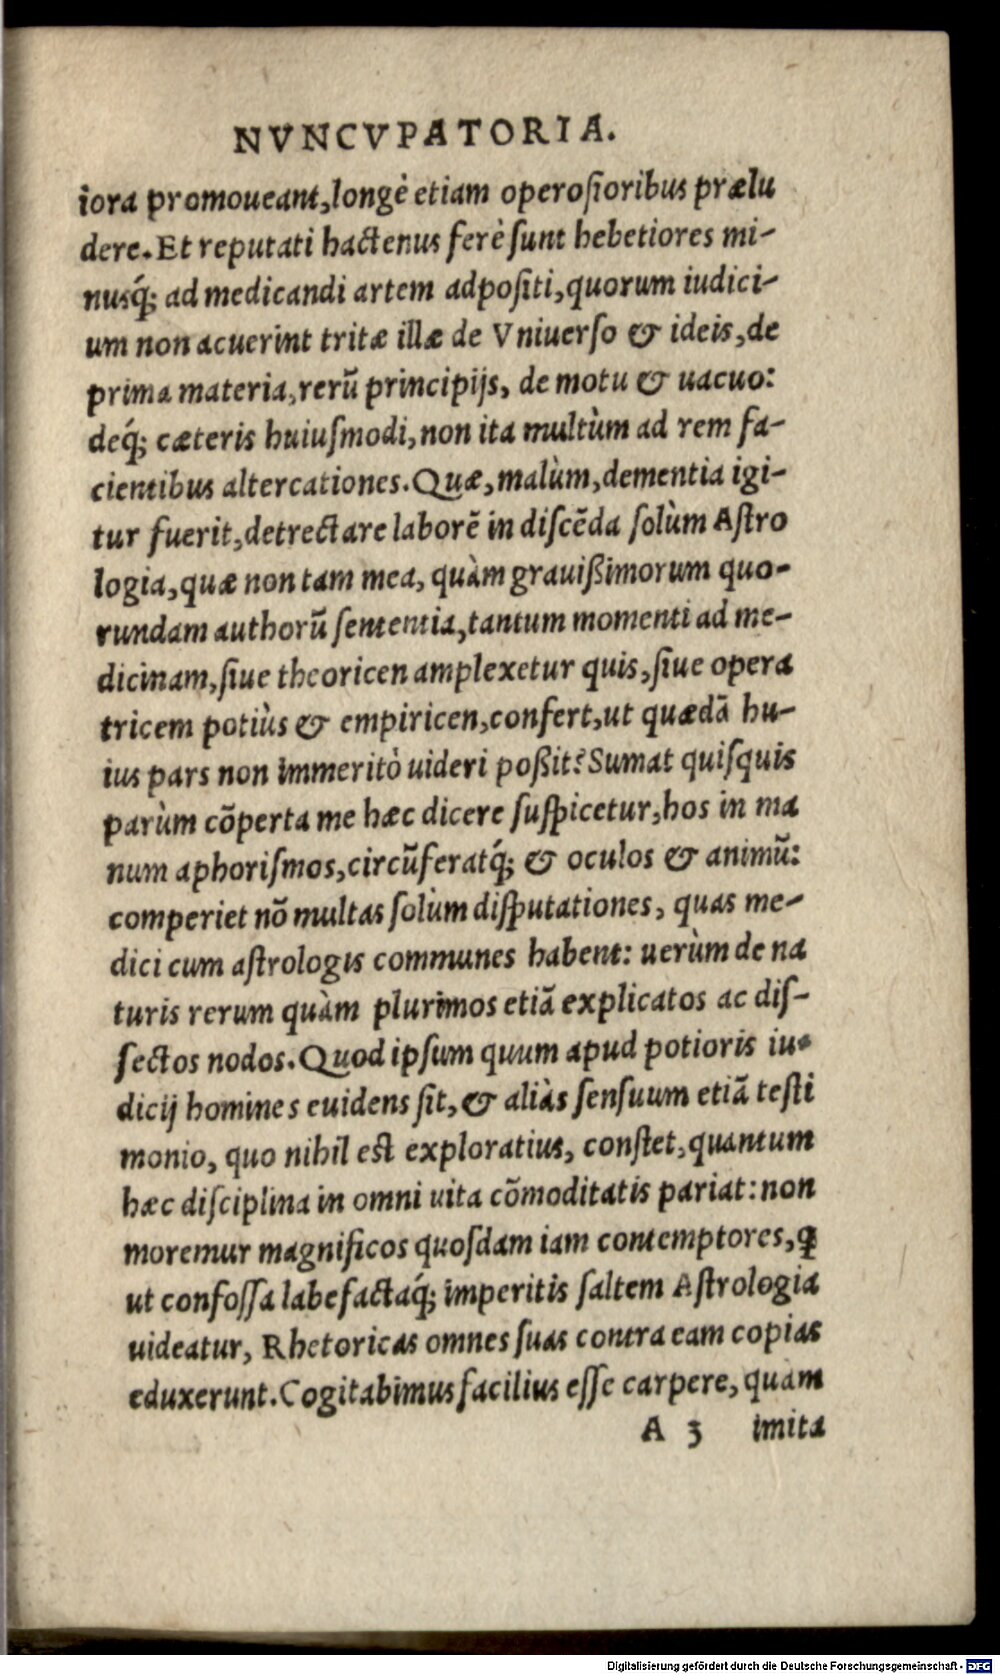 NVNCVPATORIA.
iora promoueant, longè etiam operoſioribus prælu
dere. Et reputati hactenus ferè ſunt hebetiores mi-
nusq́; ad medicandi artem adpoſiti, quorum iudici-
um non acuerint tritæ illæ de Vniuerſo & ideis, de
prima materia, rerũ principijs, de motu & uacuo:
deq́; cæteris huiuſmodi, non ita multùm ad rem fa-
cientibus altercationes. Quæ, malùm, dementia igi-
tur fuerit, detrectare laborẽ in diſcẽda ſolùm Aſtro
logia, quæ non tam mea, quàm grauißimorum quo-
rundam authorũ ſententia, tantum momenti ad me-
dicinam, ſiue theoricen amplexetur quis, ſiue opera
tricem potiùs & empiricen, confert, ut quædã hu-
ius pars non immeritò uideri poßit? Sumat quiſquis
parùm cõperta me hæc dicere ſuſpicetur, hos in ma
num aphoriſmos, circũferatq́; & oculos & animũ:
comperiet nõ multas ſolùm diſputationes, quas me-
dici cum aſtrologis communes habent: uerùm de na
turis rerum quàm plurimos etiã explicatos ac diſ-
ſectos nodos. Quod ipſum quum apud potioris iu-
dicij homines euidens ſit, & aliàs ſenſuum etiã teſti
monio, quo nihil eſt exploratius, conſtet, quantum
hæc diſciplina in omni uita cõmoditatis pariat: non
moremur magnificos quoſdam iam contemptores, ꝗ
ut confoſſa labefactaq́; imperitis ſaltem Aſtrologia
uideatur, Rhetoricas omnes ſuas contra eam copias
eduxerunt. Cogitabimus facilius eſſe carpere, quam
A 3 imita
Digitalisierung gefördert durch die Deutsche Forschungsgemeinschaft - DFG